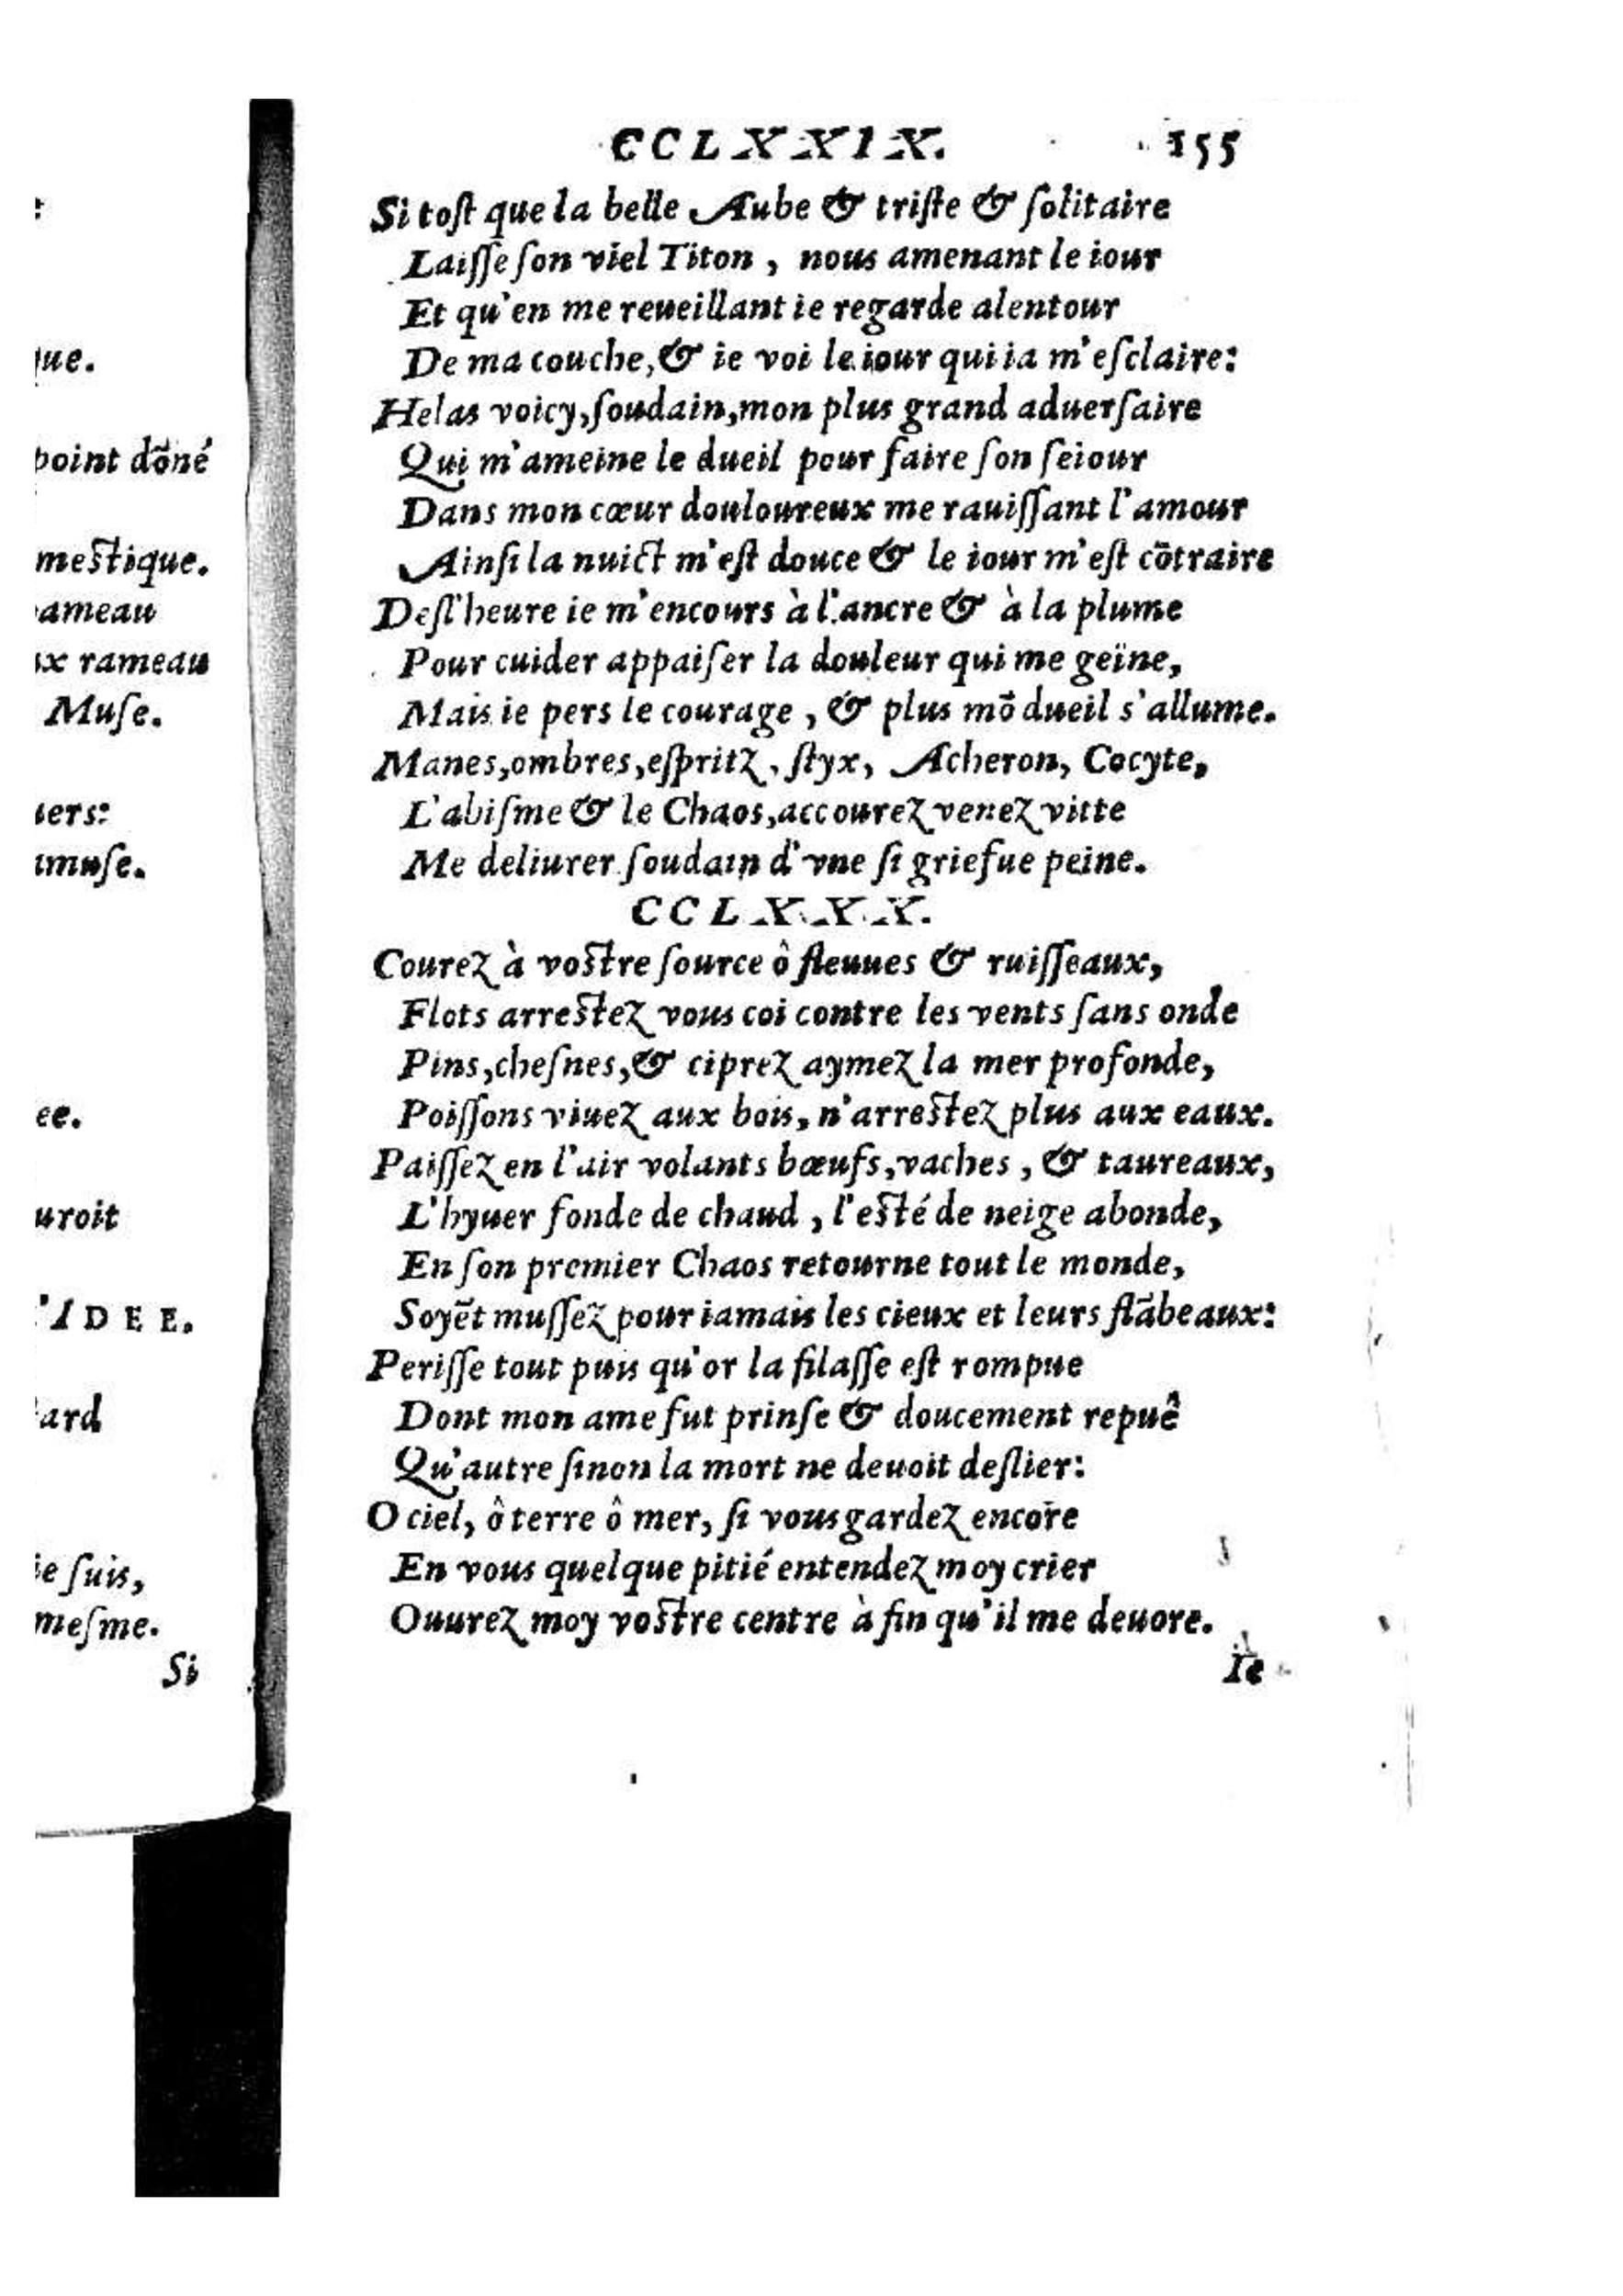 CCLXXIX. 155
Si tost que la belle Aube & triste & solitaire
Laisse son viel Titon, nous amenant le iour
Et qu'en me reueillant ie regarde alentour
De ma couche, & ie voi le iour qui ia m'esclaire:
Helas voicy, soudain, mon plus grand aduersaire
Qui m'ameine le dueil pour faire son seiour
Dans mon cœur douloureux me rauissant l'amour
Ainsi la nuict m'est douce & le iour m'est cõtraire
Desl'heure ie m'encours à l'ancre & à la plume
Pour cuider appaiser la douleur qui me geïne,
Mais ie pers le courage, & plus mõ dueil s'allume.
Manes, ombres, espritz, styx, Acheron, Cocyte,
L'abisme & le Chaos, accourez venez vitte
Me deliurer soudain d'vne si griefue peine.
CCLXXX.
Courez à vostre source ô fleuues & ruisseaux,
Flots arrestez vous coi contre les vents sans onde
Pins, chesnes, & ciprez aymez la mer profonde,
Poissons viuez aux bois, n'arrestez plus aux eaux.
Paissez en l'air volants bœufs, vaches, & taureaux,
L'hyuer fonde de chaud, l'esté de neige abonde,
En son premier Chaos retourne tout le monde,
Soyẽt mussez pour iamais les cieux et leurs flãbeaux:
Perisse tout puis qu'or la filasse est rompue
Dont mon ame fut prinse & doucement repuê
Qu'autre sinon la mort ne deuoit deslier:
O ciel, ô terre ô mer, si vous gardez encore
En vous quelque pitié entendez moy crier
Ouurez moy vostre centre à fin qu'il me deuore.
Ie
que.
point dõné
mestique.
ameau
x rameau
Muse.
ers:
muse.
ee.
uroit
'IDEE.
ard
ie suis,
mesme.
Si